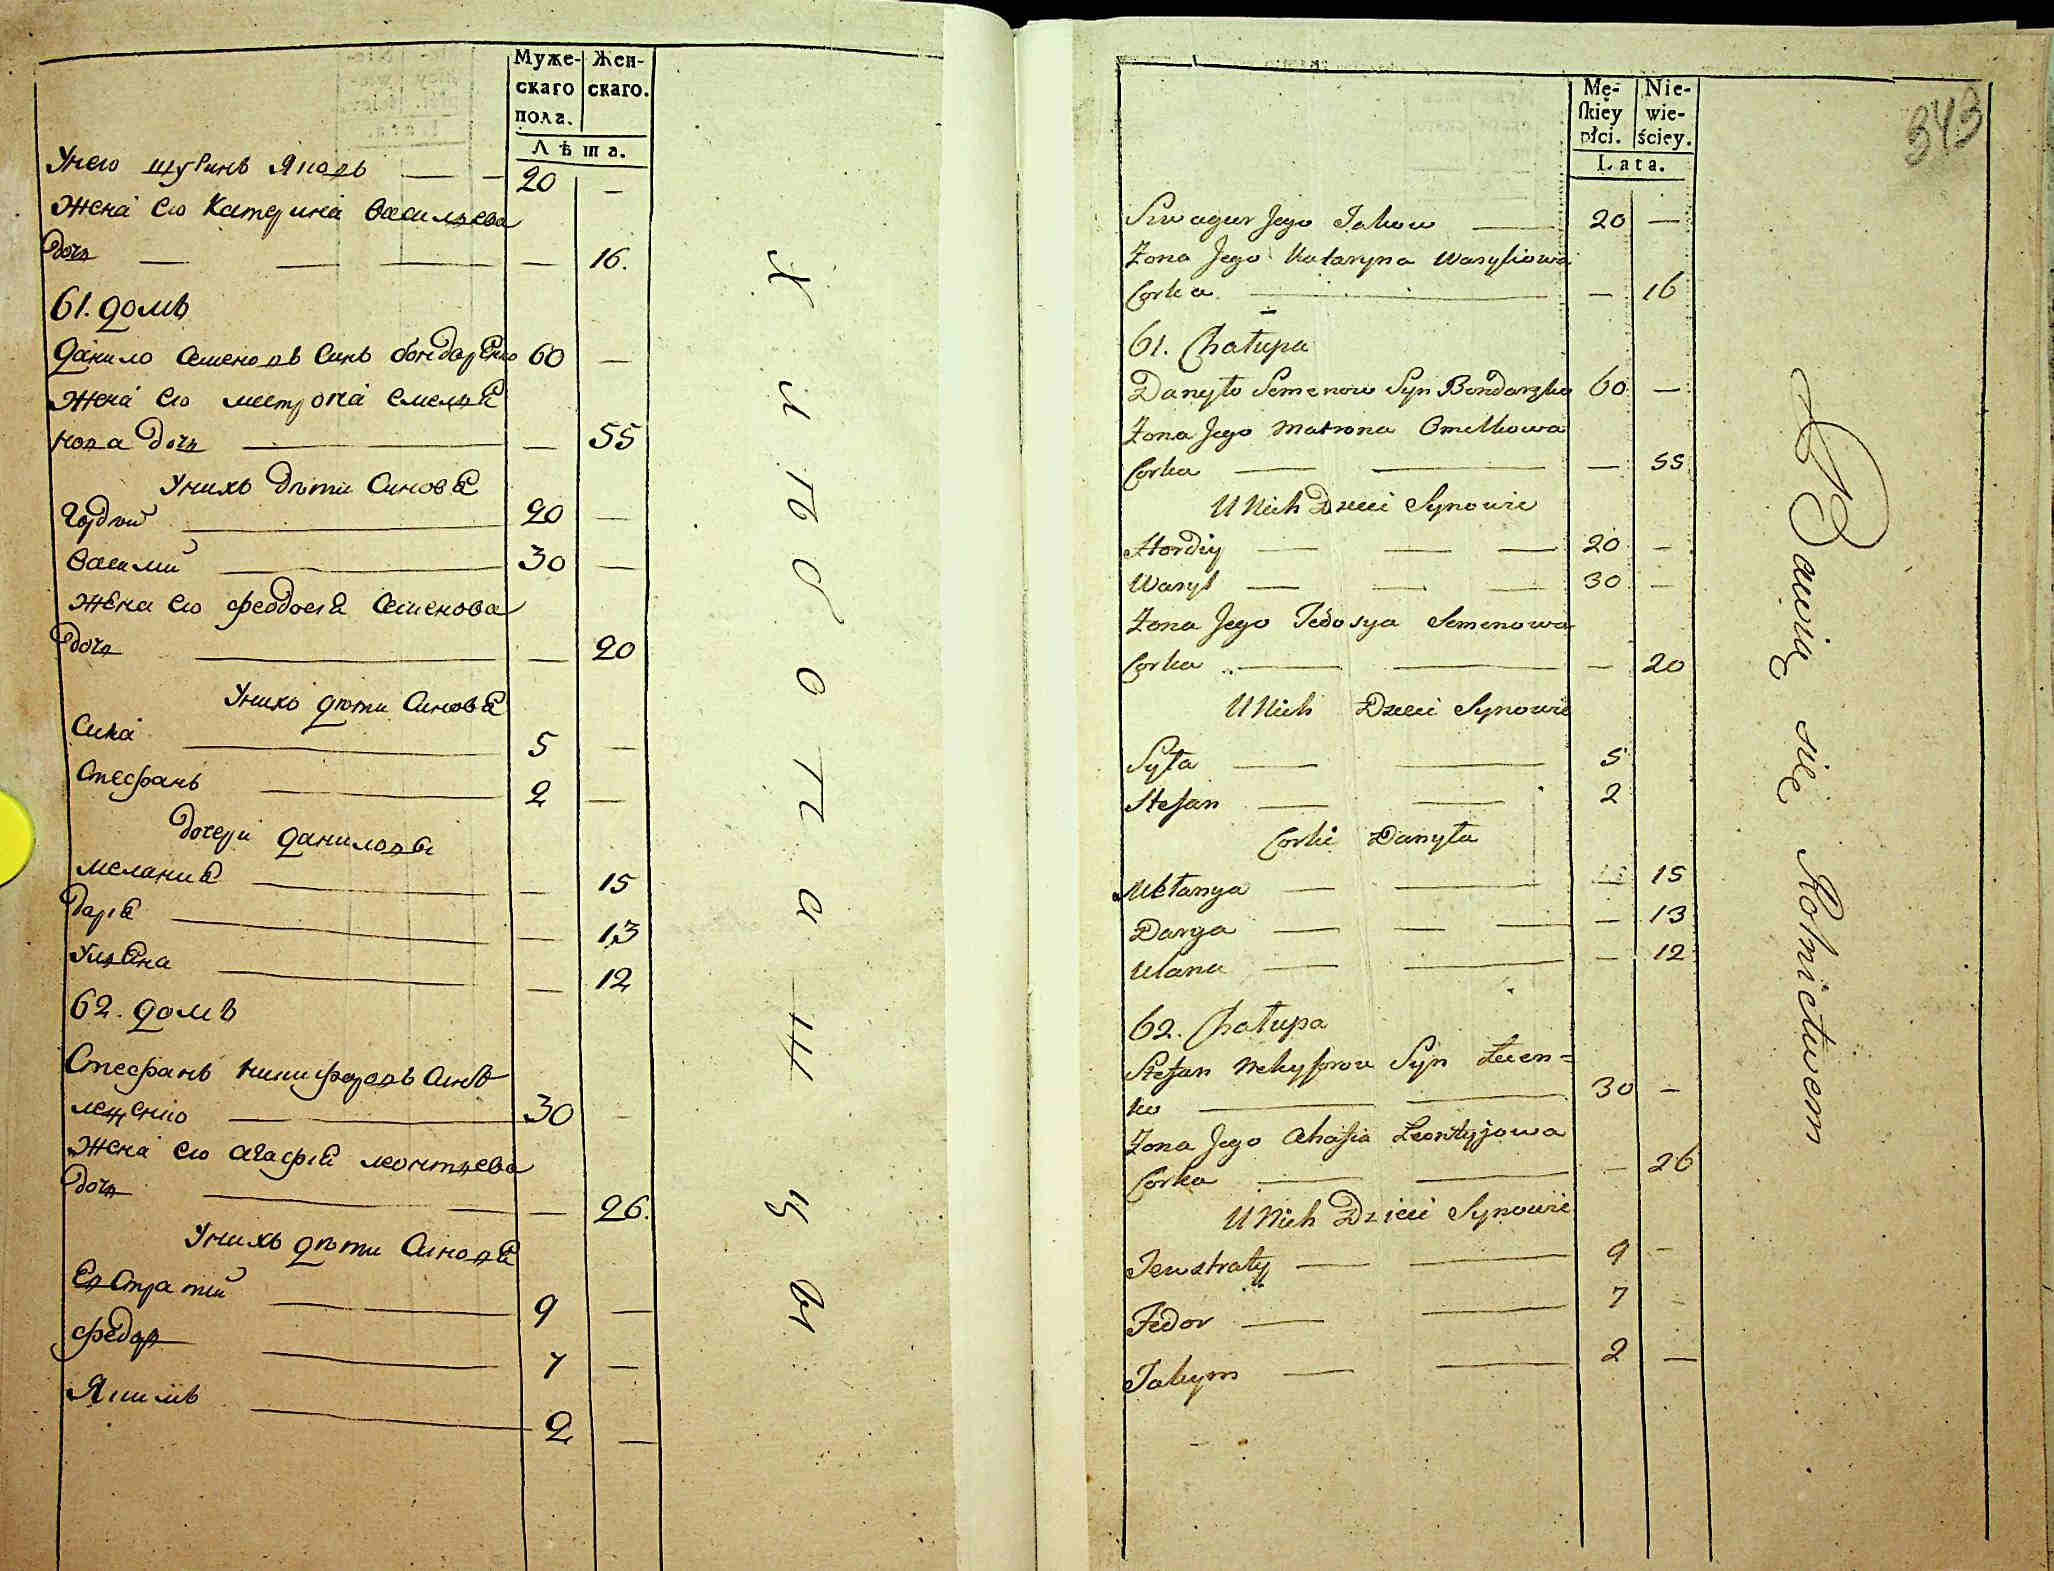 Муже-
скаго
пола.
Жен-
скаго.
Лѣта.
У него шуринъ Яковъ — — 20 —
Жена его Катерина Васильева
дочь — — — — 16.
61. домъ
Данило Семеновъ Синъ бондаренко 60 —
Жена его мотрона Емелья
нова дочь — — 55
У нихъ дѣти Синовья
Гордѣй — 20 —
Василий — 30 —
Жена его феодосия Семенова
дочь — — 20
У нихъ дѣти Синовья
Сила — 5 —
Стефанъ — 2 —
дочери Даниловы
мелания — — 15
дария — — 13
Ульяна — — 12
62. домъ
Стефанъ никифоровъ Синъ
лещенко — 30 —
Жена его агафия леонтьева
дочь — — — 26.
У нихъ дѣти Синовья
Евстратий — 9 —
федоръ — 7 —
Якимъ — 2 —
Хлѣбопашцы
343
Mę-
skiey
płci.
Nie-
wie-
ściey.
Lata.
Szwagier Jego Jakow — 20 —
Żona Jego Kataryna Wasyliowa
Corka — — 16
61. Chałupa
Danyło Semenow Syn Bondarzko 60 —
Żona Jego Matrona Omelkowa
Corka — — — 55
U Nich Dzieci Synowie
Hordiy — — — 20 —
Wasyl — — — 30 —
Żona Jego Fedosya Semenowa
Corka — — — 20
U Nich Dzieci Synowie
Syła — — 5
Stefan — — 2
Corki Danyła
Mełanya — — — 15
Darya — — — — 13
Ulana — — — 12
62. Chałupa
Stefan Nekyforow Syn Łuen=
ko — — 30 —
Żona Jego Ahafia Leontyjowa
Corka — — — 26
U Nich Dzieci Synowie
Jewstraty — — 9 —
Fedor — — 7 —
Jakym — — 2 —
Bawią się Rolnictwem